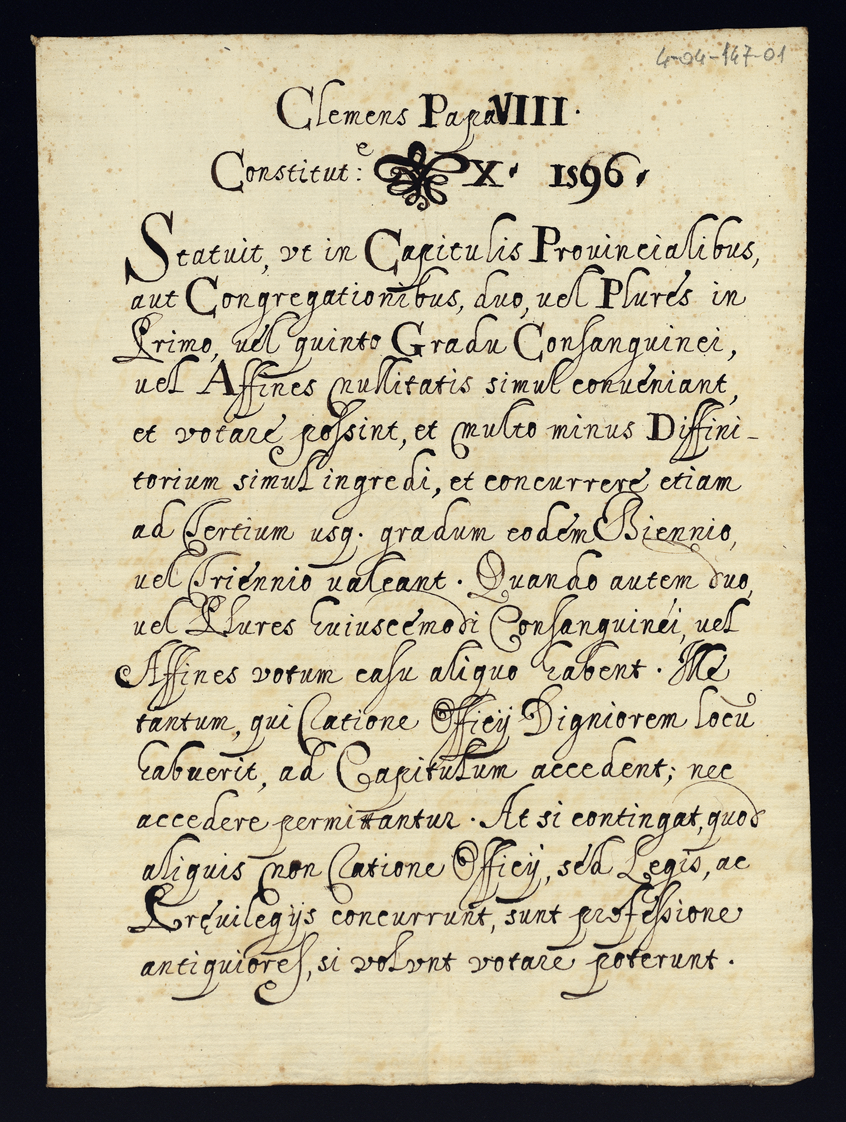 4-04-147-01
Clemens Papa VIII.
Constitut:e X. 1596.
Statuit, vt in Capitulis Prouincialibus,
aut Congregationibus, duo, uel Plures in
Primo, uel quinto Gradu Consanguinei,
uel Affines nullitatis simul conueniant,
et votare possint, et multo minus Diffini-
torium simul ingredi, et concurrere etiam
ad Tertium usq. gradum eodem Biennio,
uel Triennio ualeant. Quando autem duo,
uel Plures huiuscemodi Consanguinei, uel
Affines votum casu aliquo habent. Illi
tantum, qui Ratione Officij Digniorem locū
habuerit, ad Capitulum accedent; nec
accedere permittantur. At si contingat, quod
aliquis non Ratione Officij, sed Legis, ac
Preuilegijs concurrunt, sunt professione
antiquiores, si volvnt votare poterunt.